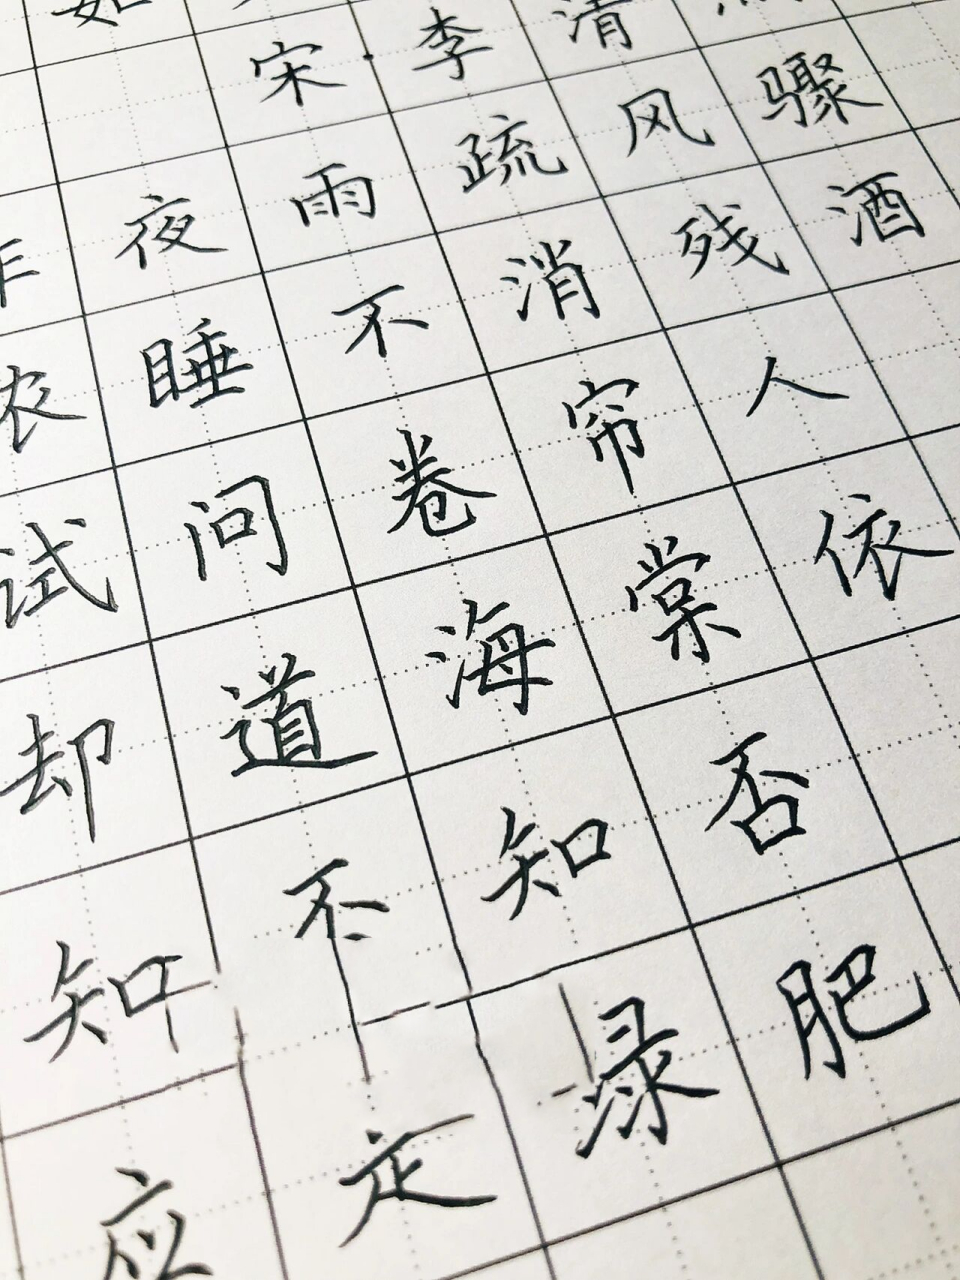 如
宋·李清
昨夜雨疏风骤
浓睡不消残酒
试问卷帘人
却道海棠依
知不知否
应绿肥